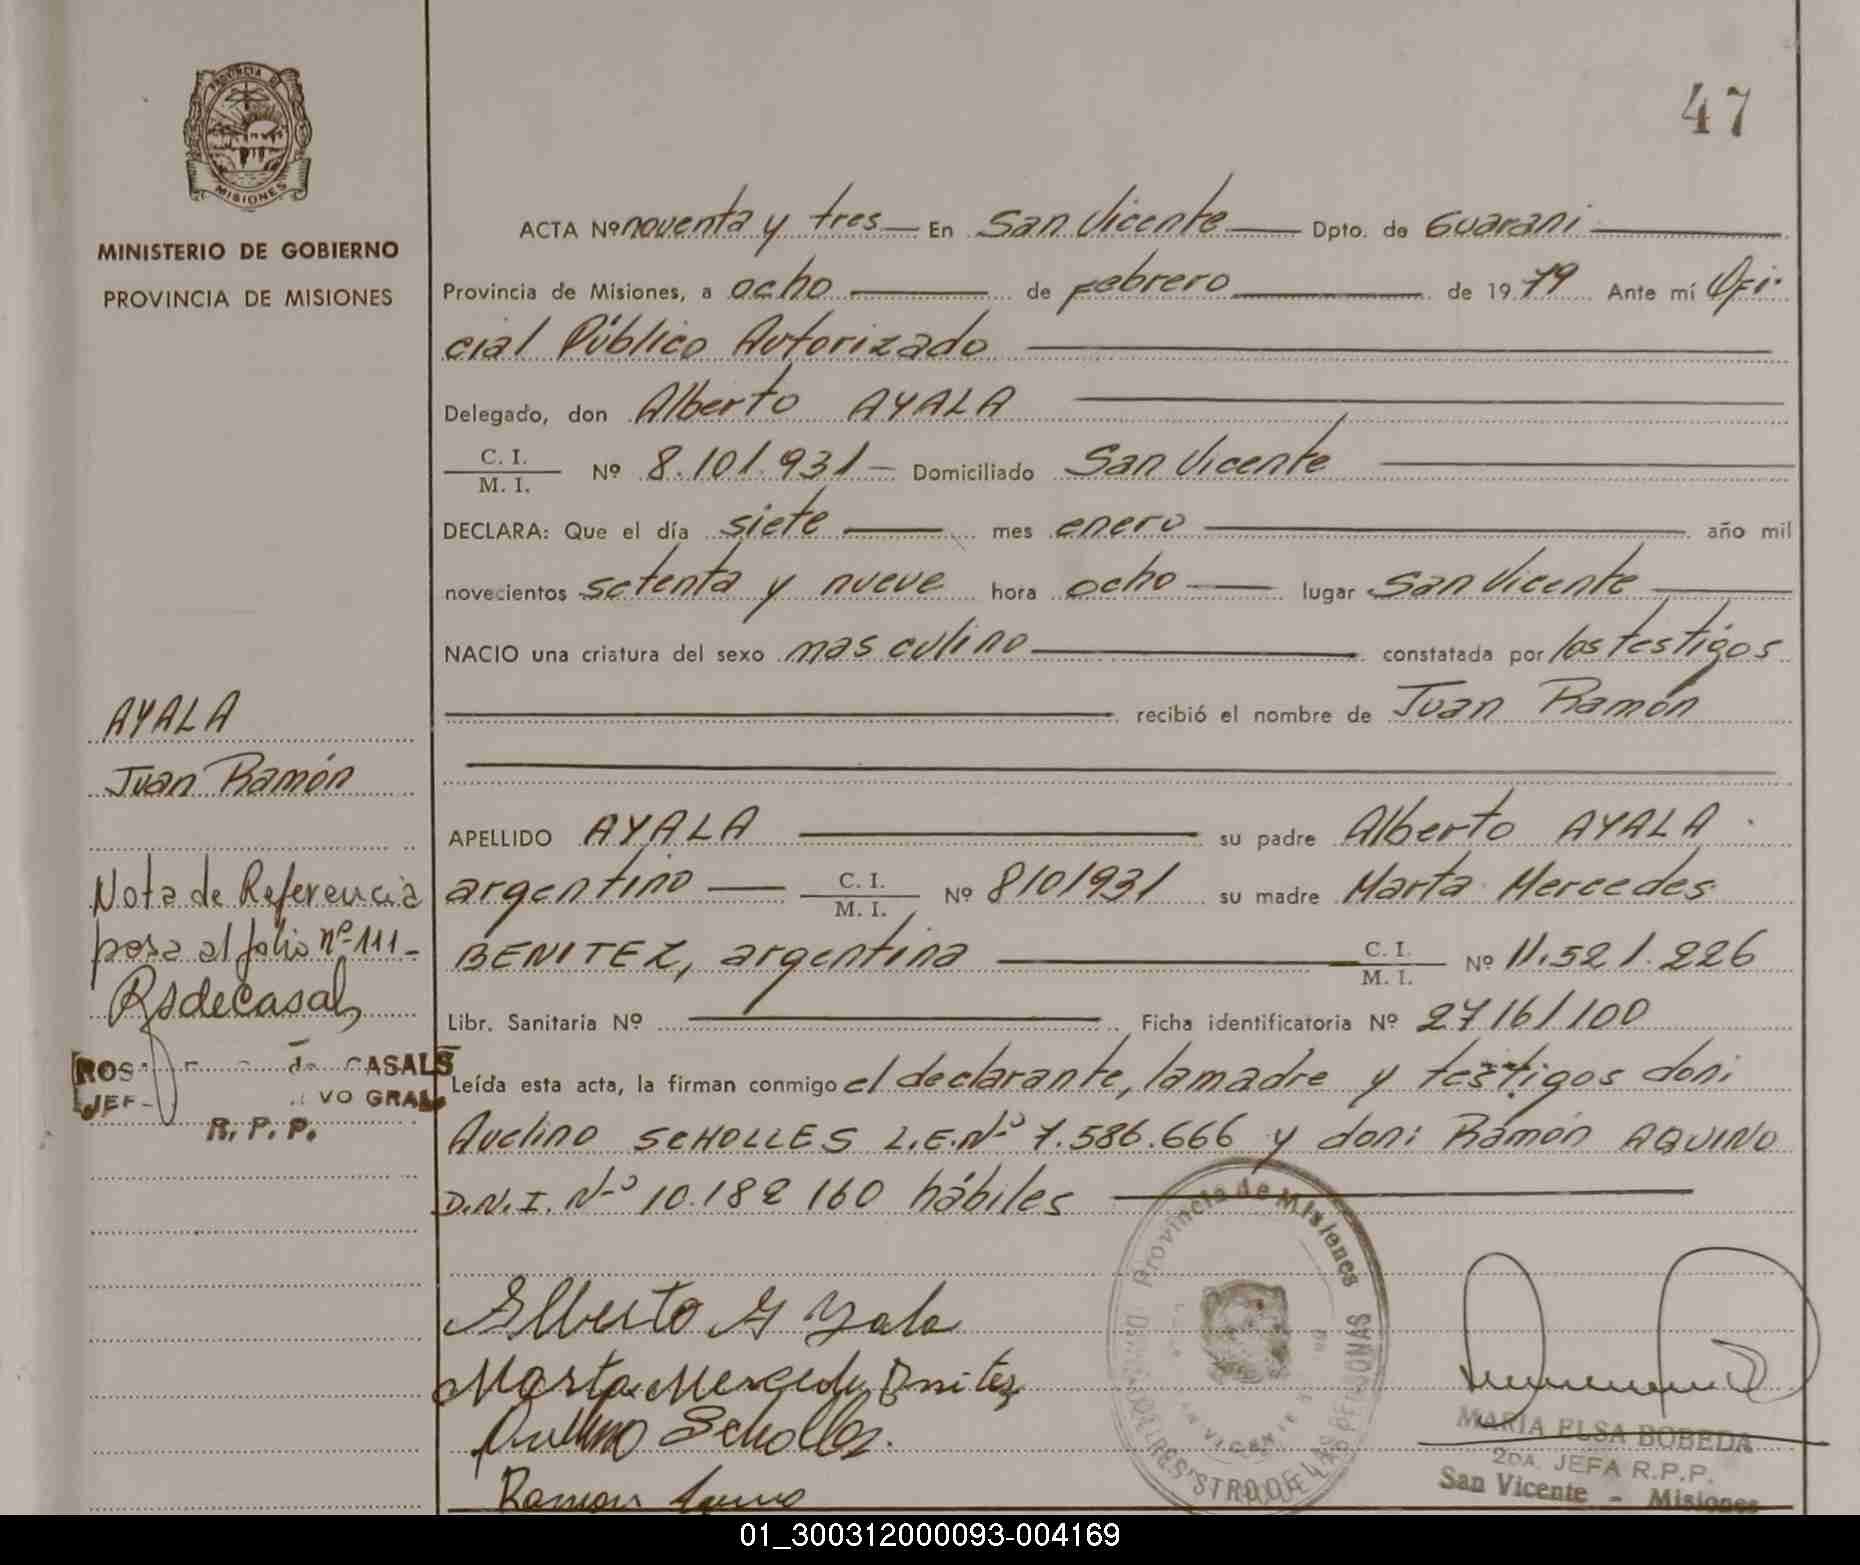 PROVINCIA DE
MISIONES
MINISTERIO DE GOBIERNO
PROVINCIA DE MISIONES
47
ACTA Nº noventa y tres En San Vicente Dpto. de Guarani
Provincia de Misiones, a ocho de febrero de 1979 Ante mí Ofi-
cial Público Autorizado
Delegado, don Alberto AYALA
C. I.
M. I. Nº 8.101.931 Domiciliado San Vicente
DECLARA: Que el día siete mes enero año mil
novecientos setenta y nueve hora ocho lugar San Vicente
NACIO una criatura del sexo masculino constatada por los testigos
recibió el nombre de Juan Ramón
APELLIDO AYALA su padre Alberto AYALA
argentino C. I.
M. I. Nº 8101931 su madre Marta Mercedes
BENITEZ, argentina C. I.
M. I. Nº 11.521.226
Libr. Sanitaria Nº Ficha identificatoria Nº 27161/100
Leída esta acta, la firman conmigo el declarante, la madre y testigos don:
Avelino SCHOLLES L.E.Nº 7.586.666 y don: Ramón AQUINO
D.N.I. Nº 10.182 160 hábiles
AYALA
Juan Ramón
Nota de Referencia
pasa al folio nº 111-
CASALS
VO GRAL
R. P. P.
Alberto Ayala
Marta Mercedes Benitez
Avelino Scholles
Ramon
Provincia de Misiones
REGISTRO DE LAS PERSONAS
SAN VICENTE
MARIA ELSA BOBEDA
2DA. JEFA R.P.P.
San Vicente - Misiones
01_300312000093-004169